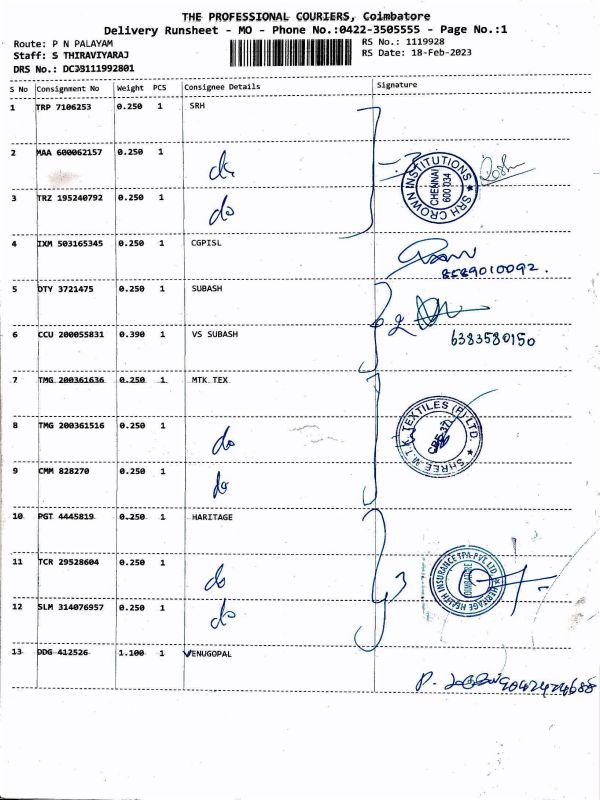 THE PROFESSIONAL COURIERS, Coimbatore
Delivery Runsheet - MO - Phone No.:0422-3505555 - Page No.:1
Route: P N PALAYAM
RS No.: 1119928
Staff: S THIRAVIYARAJ
RS Date: 18-Feb-2023
DRS No.: DCJB111992801
S No Consignment No Weight PCS Consignee Details Signature
1 TRP 7106253 0.250 1 SRH
2 MAA 600062157 0.250 1 do
SRH CROWN INSTITUTIONS ★ CHENNAI 600 034
3 TRZ 195240792 0.250 1 do
4 IXM 503165345 0.250 1 CGPISL
8589010092.
5 DTY 3721475 0.250 1 SUBASH
6 CCU 200055831 0.390 1 VS SUBASH
6383580150
7 TMG 200361636 0.250 1 MTK TEX
8 TMG 200361516 0.250 1 do
SHREE M.T.K. TEXTILES (P) LTD. ★
9 CMM 828270 0.250 1 do
10 PGT 4445819 0.250 1 HARITAGE
11 TCR 29528604 0.250 1 do
3
HERITAGE HEALTH INSURANCE TPA PVT. LTD.
12 SLM 314076957 0.250 1 do
13 DDG 412526 1.100 1 VENUGOPAL
P. 9042424688